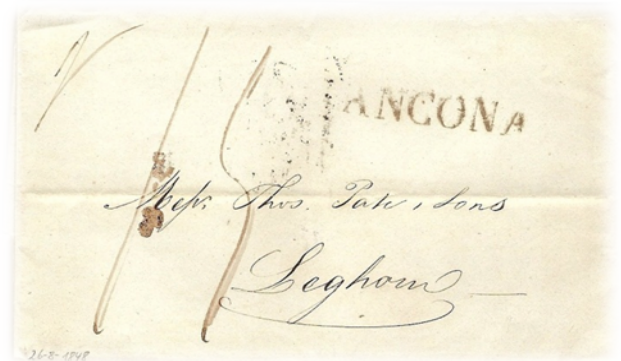 ANCONA
Messrs. Thos. Pate & Sons
Leghorn
26-8-1848